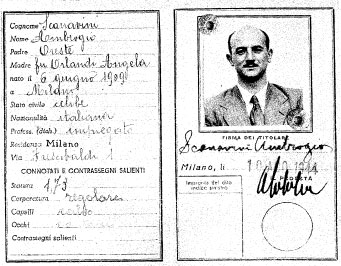 Cognome Scanavini
Nome Ambrogio
Padre Oreste
Madre fu Orlandi Angela
nato il 6 giugno 1909
a Milano
Stato civile celibe
Nazionalità italiana
Profess. (dich.) impiegato
Residenza Milano
Via
CONNOTATI E CONTRASSEGNI SALIENTI
Statura 1,73
Corporatura regolare
Capelli
Occhi
Contrassegni salienti
FIRMA DEL TITOLARE
Scanavini Ambrogio
Milano, li 1944
Impronta del dito
indice sinistro